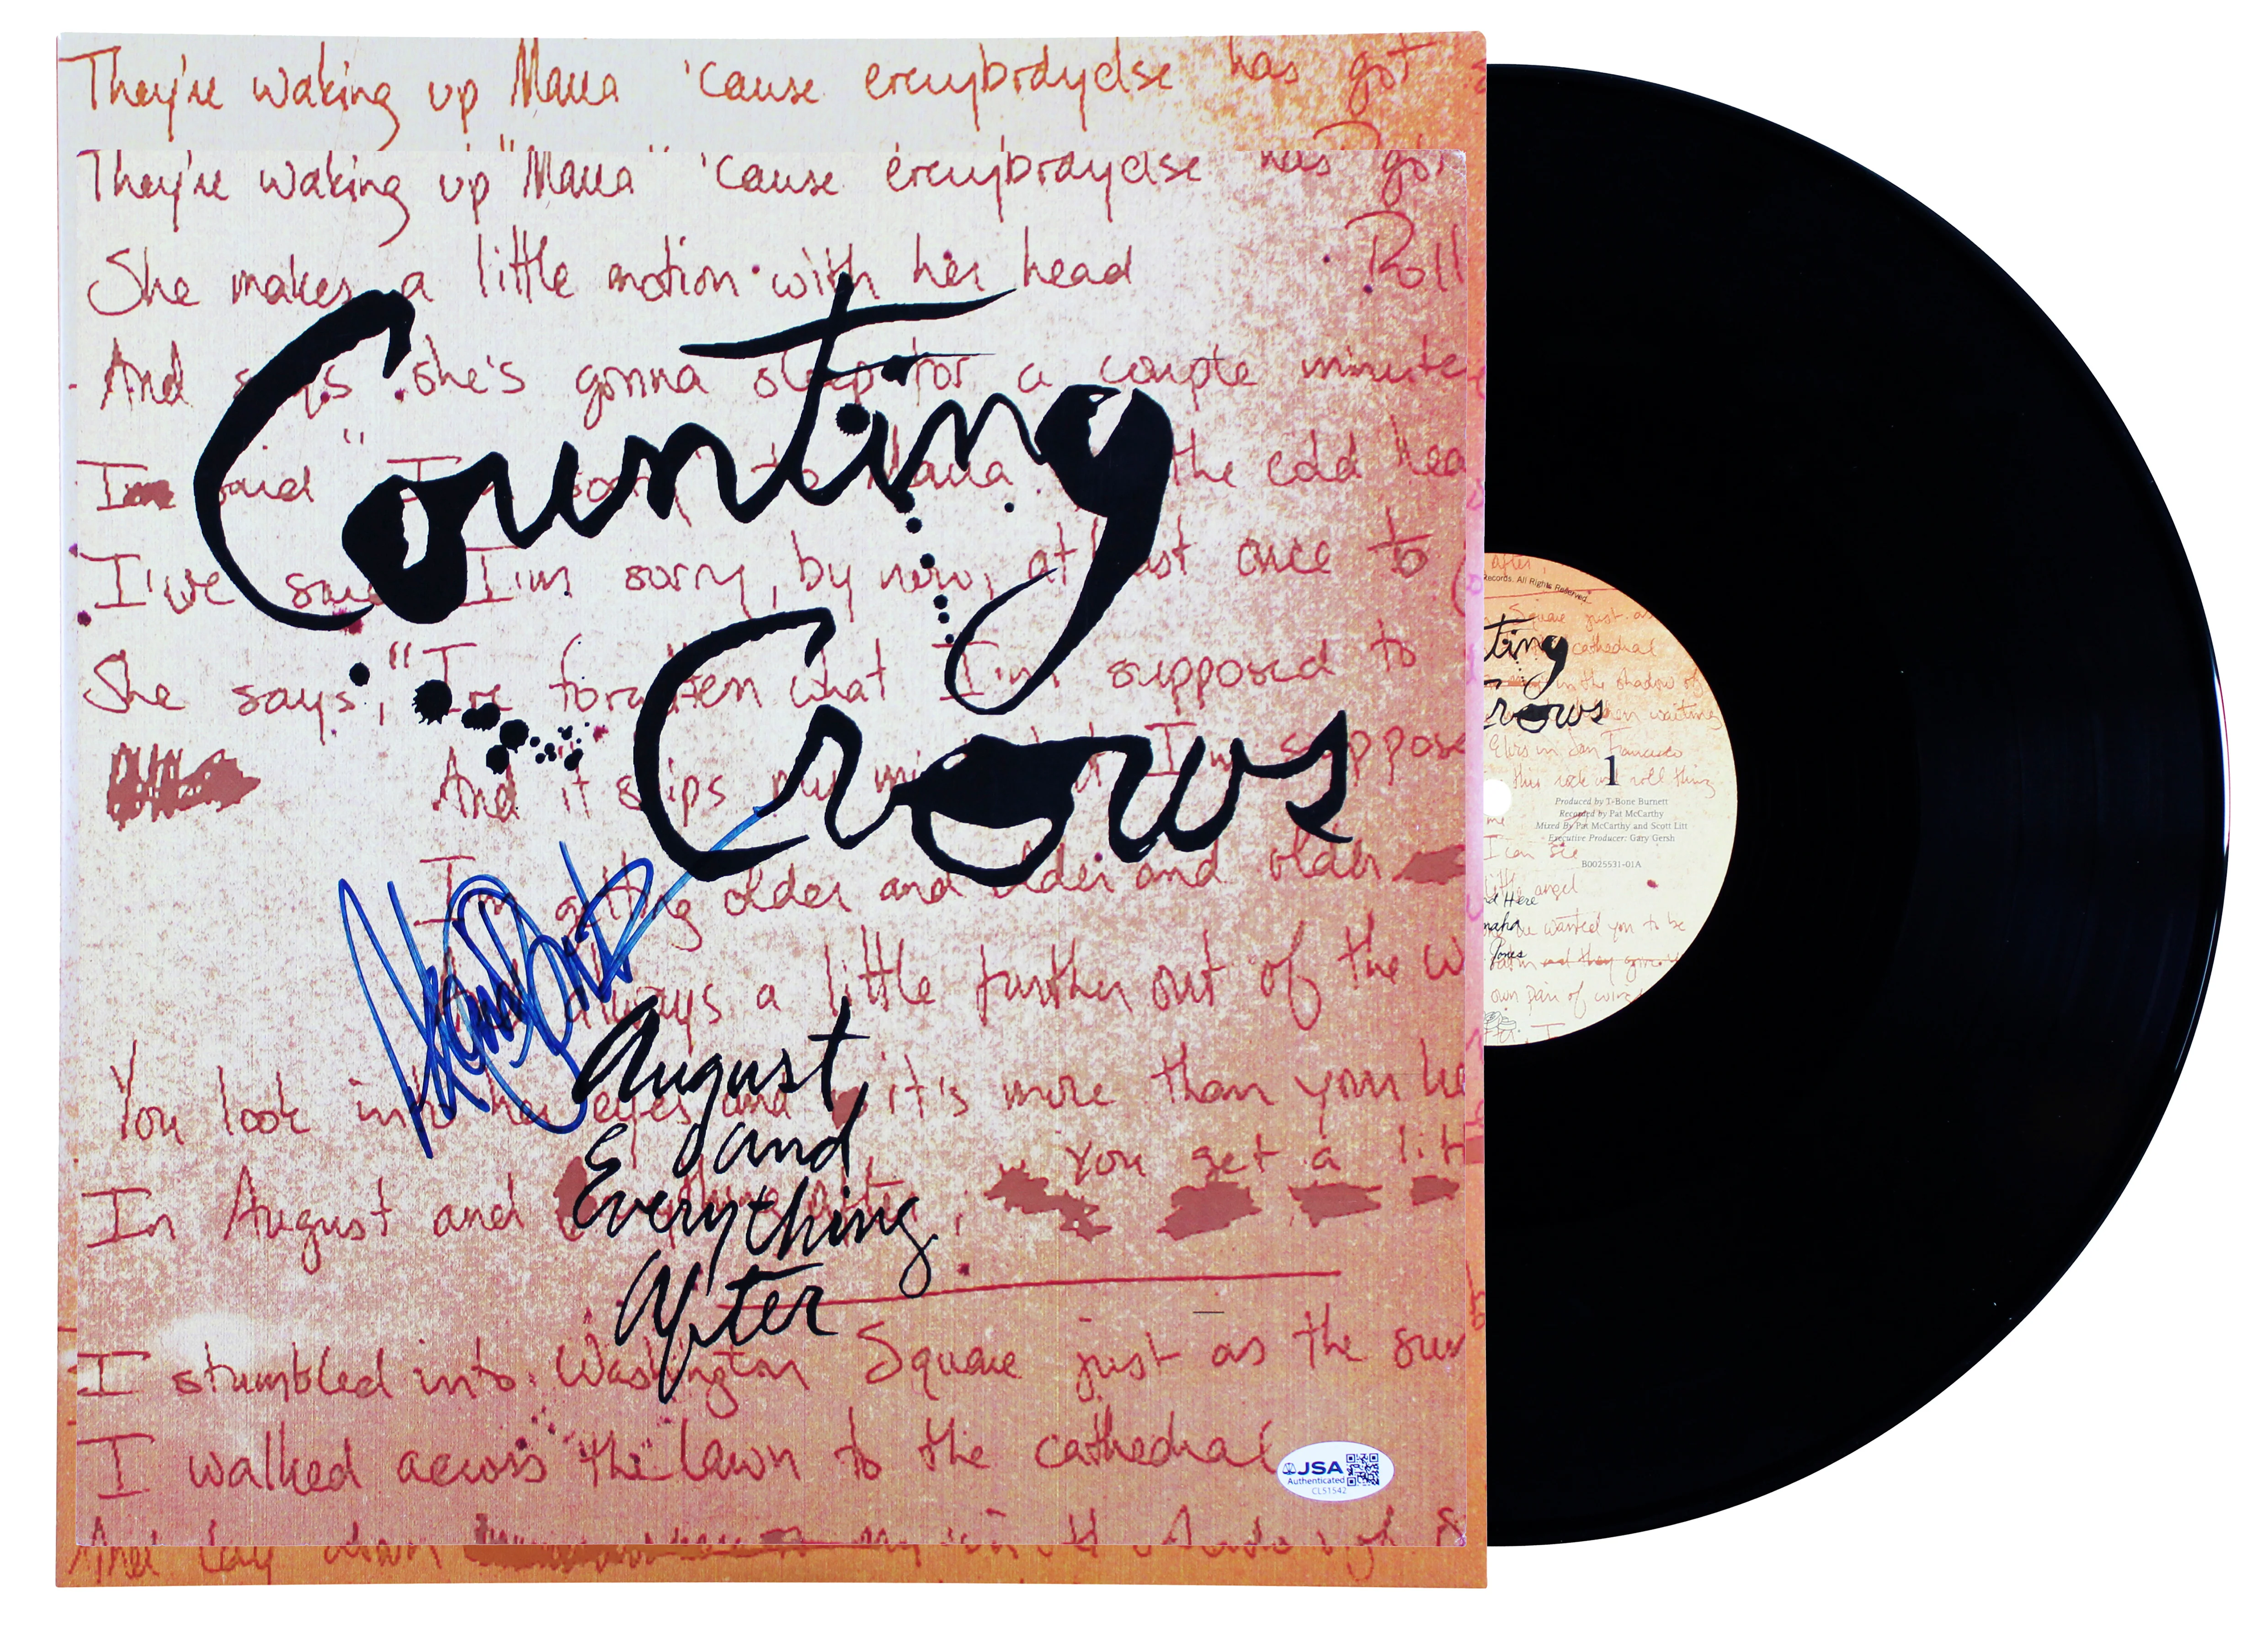 They're waking up Maria 'cause everybodyelse has got
They're waking up "Maria" 'cause everybodyelse has got
She makes a little motion with her head
Roll
And says she's gonna sleep for a couple minute
I said "I'm sorry to Maria the cold hea
I've said I'm sorry, by now, at least once to
She says, "I've forgotten what I'm supposed to
And it slips my mind what I'm suppose
I'm getting older and older and older
always a little further out of the w
You look into her eyes and it's more than your he
You get a litt
In August and everything after,
I stumbled into Washington Square just as the sun
I walked across the lawn to the cathedral
And lay down in the shadow of S
Counting
Crows
August
and
Everything
After
JSA
Authenticated
CL51542
after,
Records. All Rights Reserved.
Square just as
cathedral
in the shadow of
ting
rows
when waiting
Ellis in San Francisco
this rock and roll thing
1
Produced by T-Bone Burnett
Recorded by Pat McCarthy
Mixed By Pat McCarthy and Scott Litt
Executive Producer: Gary Gersh
me
I can see
B0025531-01A
little angel
nd Here
maha
we wanted you to be
Jones
and they gave
own pair of